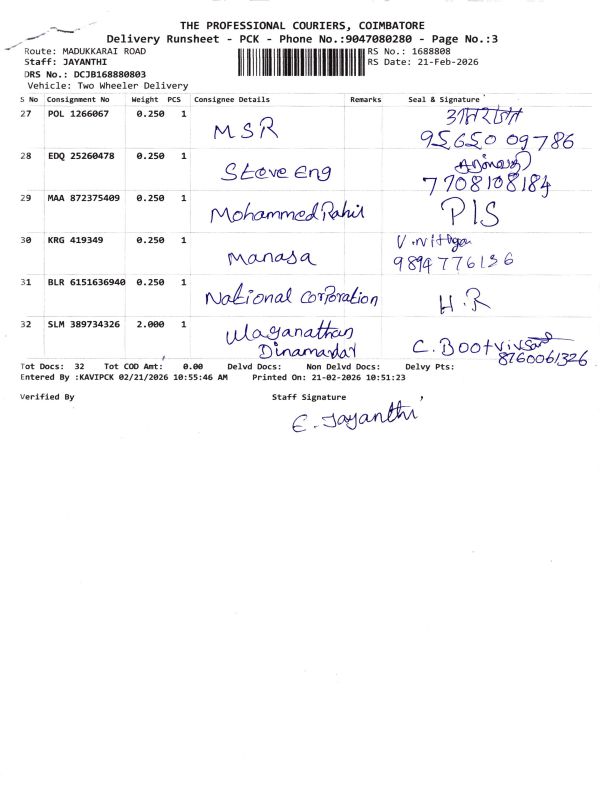 THE PROFESSIONAL COURIERS, COIMBATORE
Delivery Runsheet - PCK - Phone No.:9047080280 - Page No.:3
Route: MADUKKARAI ROAD
RS No.: 1688808
Staff: JAYANTHI
RS Date: 21-Feb-2026
DRS No.: DCJB168880803
Vehicle: Two Wheeler Delivery
S No Consignment No Weight PCS Consignee Details Remarks Seal & Signature
27 POL 1266067 0.250 1 MSR
95650 09786
28 EDQ 25260478 0.250 1 Steve Eng
7708108184
29 MAA 872375409 0.250 1 Mohammed Rahil PIS
30 KRG 419349 0.250 1 Manasa
9894776136
31 BLR 6151636940 0.250 1 National corporation H.R
32 SLM 389734326 2.000 1 Ulaganathan
Dinamalar C. Boot
8760061326
Tot Docs: 32 Tot COD Amt: 0.00 Delvd Docs: Non Delvd Docs: Delvy Pts:
Entered By :KAVIPCK 02/21/2026 10:55:46 AM Printed On: 21-02-2026 10:51:23
Verified By Staff Signature
E. Jayanthi